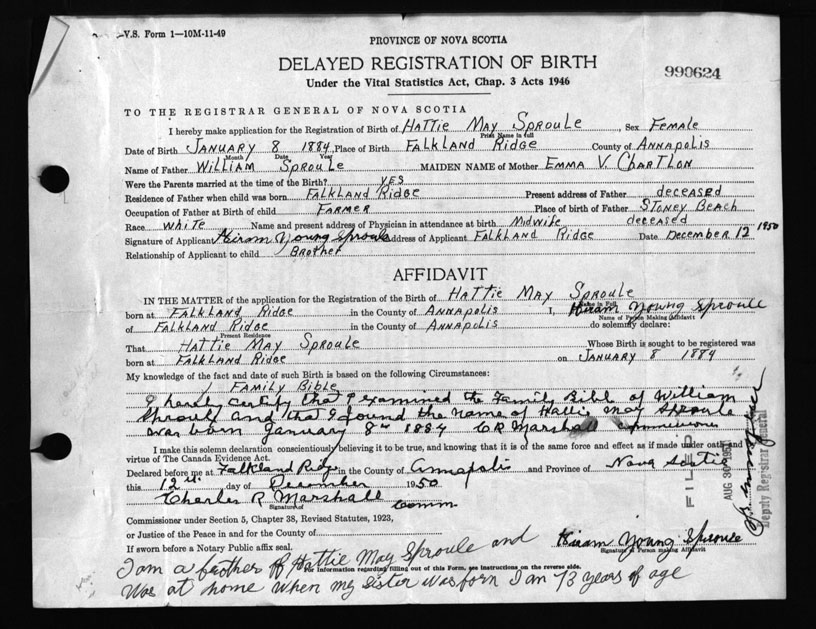 V.S. Form 1—10M-11-49
PROVINCE OF NOVA SCOTIA
DELAYED REGISTRATION OF BIRTH
990624
Under the Vital Statistics Act, Chap. 3 Acts 1946
TO THE REGISTRAR GENERAL OF NOVA SCOTIA
I hereby make application for the Registration of Birth of HATTIE MAY SPROULE, Sex FEMALE
Print Name in full
Date of Birth JANUARY 8 1884, Place of Birth FALKLAND RIDGE County of ANNAPOLIS
Month Date Year
Name of Father WILLIAM SPROULE MAIDEN NAME of Mother EMMA V. CHARTLON
Were the Parents married at the time of the Birth? YES
Residence of Father when child was born FALKLAND RIDGE Present address of Father deceased
Occupation of Father at Birth of child FARMER Place of birth of Father STONEY BEACH
Race WHITE Name and present address of Physician in attendance at birth Midwife deceased
Signature of Applicant Hiram Young Sproule Address of Applicant FALKLAND RIDGE Date DECEMBER 12 1950
Relationship of Applicant to child Brother
AFFIDAVIT
IN THE MATTER of the application for the Registration of the Birth of HATTIE MAY SPROULE
Name in Full
born at FALKLAND RIDGE in the County of ANNAPOLIS I, Hiram Young Sproule
Name of Person Making Affidavit
of FALKLAND RIDGE in the County of ANNAPOLIS do solemnly declare:
Present Residence
That HATTIE MAY SPROULE Whose Birth is sought to be registered was
born at FALKLAND RIDGE on JANUARY 8 1884
My knowledge of the fact and date of such Birth is based on the following Circumstances:
1 FAMILY BIBLE
I hereby certify that I examined the Family Bible of William
Sproule and that I found the name of Hattie May Sproule
was born January 8th 1884 CR Marshall commissioner
I make this solemn declaration conscientiously believing it to be true, and knowing that it is of the same force and effect as if made under oath and by
virtue of The Canada Evidence Act.
Declared before me at Falkland Ridge in the County of Annapolis and Province of Nova Scotia
this 12th day of December 1950
Charles R Marshall Comm
Signature of
Commissioner under Section 5, Chapter 38, Revised Statutes, 1923,
or Justice of the Peace in and for the County of
Hiram Young Sproule
If sworn before a Notary Public affix seal.
Signature of Person making Affidavit
I am a brother of Hattie May Sproule and
For Information regarding filling out of this Form, see instructions on the reverse side.
Was at home when my sister was born I am 73 years of age
FILED
AUG 30 1951
Deputy Registrar General